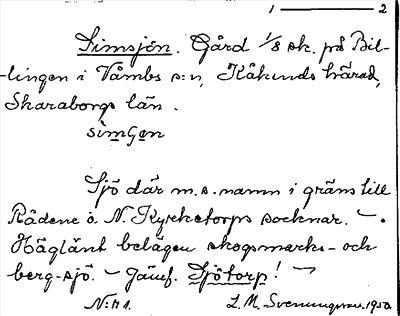 1 ——— 2
Simsjön. Gård 1/8 sk. på Bil-
-lingen i Våmbs s:n, Kåkinds härad,
Skaraborgs län.
simʒən
Sjö där m. s. namn i gräns till
Rådene o. N. Kyrketorps socknar. –.
Höglänt belägen skogsmarks- och
berg-sjö. – Jämf. Sjötorp! –
N:r 1.
L. M. Svenungsson. 1950.